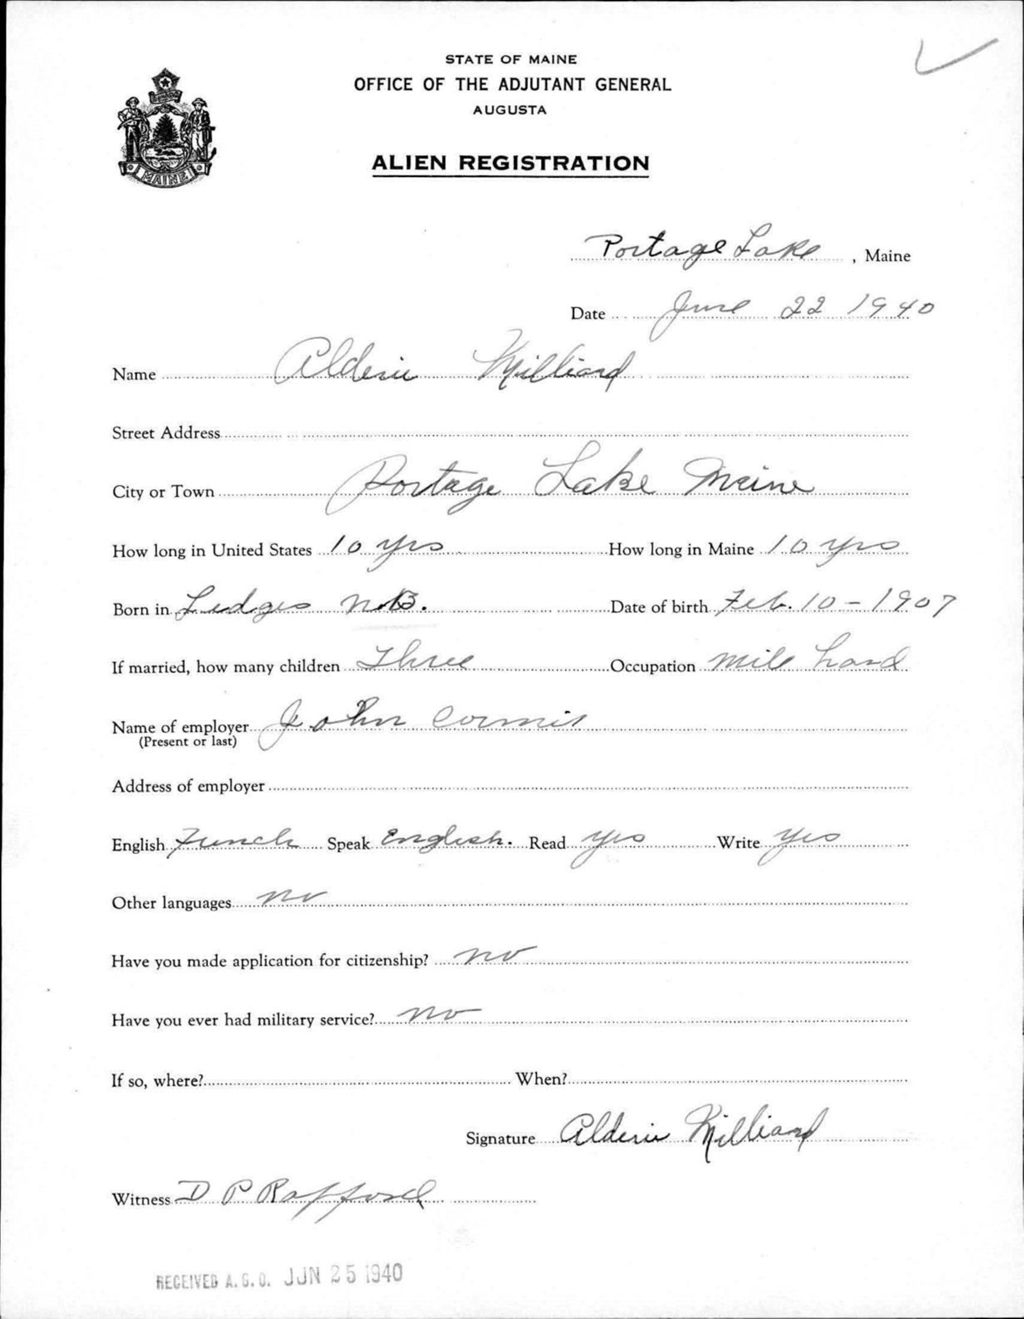 STATE OF MAINE
OFFICE OF THE ADJUTANT GENERAL
AUGUSTA
ALIEN REGISTRATION
MAINE
Portage Lake, Maine
Date June 22 1940
Name Alderie Milliard
Street Address
City or Town Portage Lake Maine
How long in United States 10 yrs How long in Maine 10 yrs
Born in Ledges N.B. Date of birth Feb. 10 - 1907
If married, how many children Three Occupation Mill hand
Name of employer John Cormie
(Present or last)
Address of employer
English French Speak English. Read Yes Write Yes
Other languages no
Have you made application for citizenship? no
Have you ever had military service? no
If so, where? When?
Signature Alderie Milliard
Witness D P Rafford
RECEIVED A.G.O. JUN 25 1940